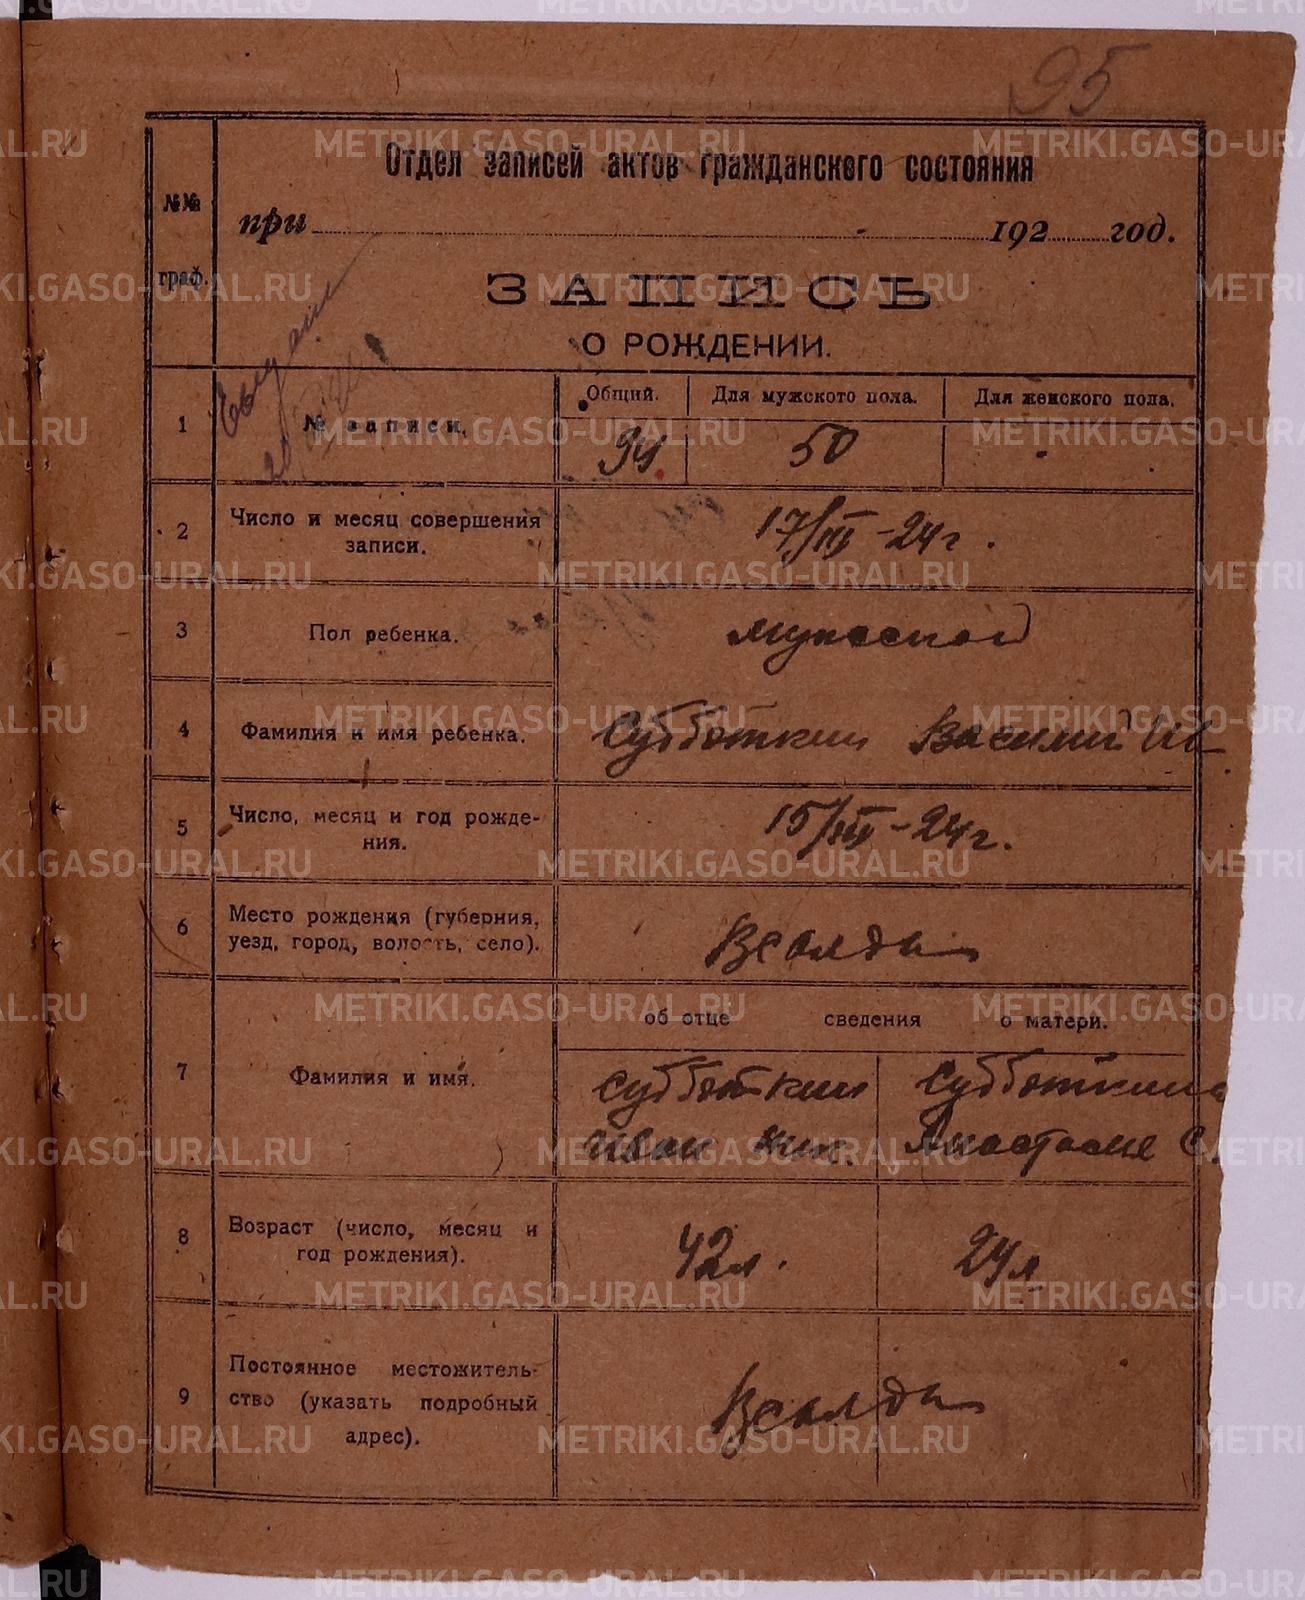 95
Отдел записей актов гражданского состояния
№№ граф.
при 192 год.
ЗАПИСЬ
О РОЖДЕНИИ.
Общий. Для мужского пола. Для женского пола.
1 № записи. 94 50
2 Число и месяц совершения записи. 17/III-24г.
3 Пол ребенка. мужской
4 Фамилия и имя ребенка. Субботкин Василий Ив
5 Число, месяц и год рожде-
ния. 15/III-24г.
6 Место рождения (губерния,
уезд, город, волость, село).
об отце сведения о матери.
7 Фамилия и имя. Субботкин Субботкина
Иван Анастасия С.
8 Возраст (число, месяц и
год рождения). 42л. 24л
9 Постоянное местожитель-
ство (указать подробный
адрес).
METRIKI.GASO-URAL.RU